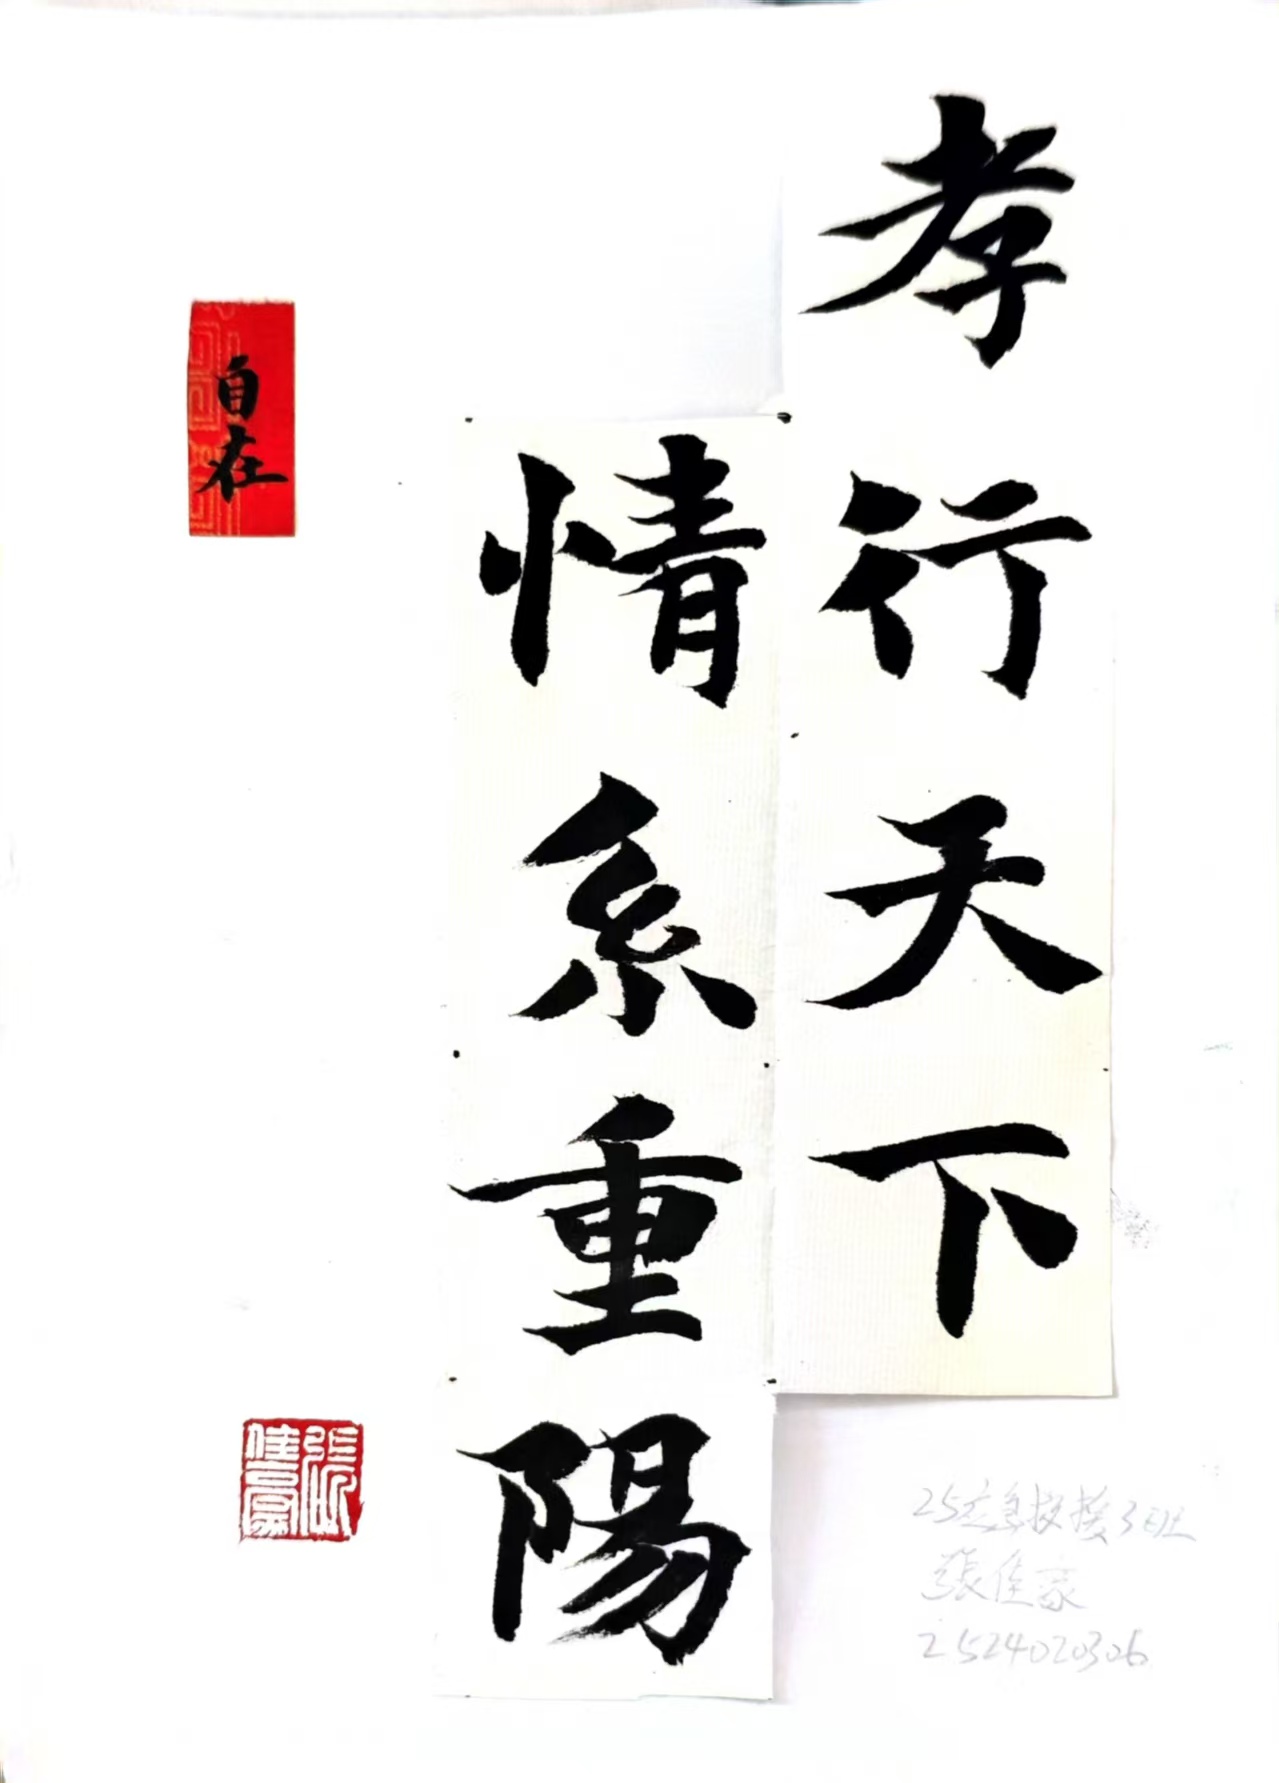 孝行天下
情系重陽
自在
張佳豪
25应急救援3班
張佳豪
2524020306